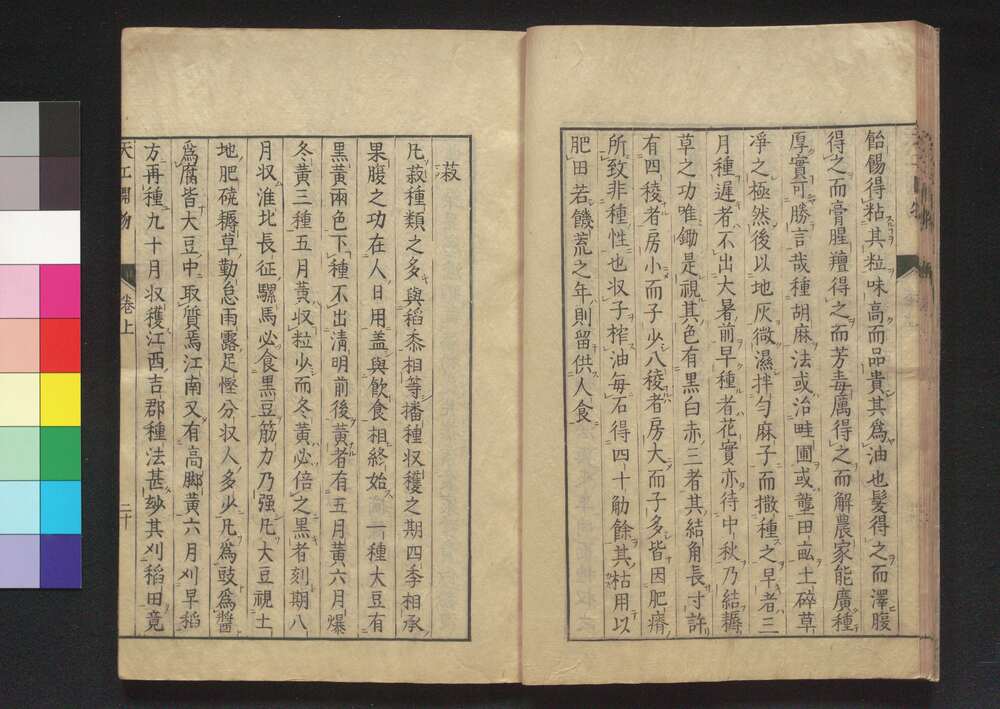 飴餳得粘其粒味高而品貴其為油也髮得之而澤腹
得之而膏腥羶得之而芳毒厲得之而解農家能廣種
厚實可勝言哉種胡麻法或治畦圃或壟田畝土碎草
凈之極然後以地灰微濕拌勻麻子而撒種之早者三
月種遲者不出大暑前早種者花實亦待中秋乃結耨
草之功唯鋤是視其色有黑白赤三者其結角長寸許
有四稜者房小而子少八稜者房大而子多皆因肥瘠
所致非種性也収子榨油每石得四十觔餘其枯用以
肥田若饑荒之年則留供人食
菽
凡菽種類之多與稻黍相等播種収穫之期四季相承
果腹之功在人日用蓋與飲食相終始一種大豆有
黑黃兩色下種不出清明前後黃者有五月黃六月爆
冬黃三種五月黃収粒少而冬黃必倍之黑者刻期八
月収淮北長征騾馬必食黑豆筋力乃强凡大豆視土
地肥磽耨草勤怠雨露足慳分収人多少凡為豉為醬
為腐皆大豆中取質焉江南又有高脚黃六月刈早稻
方再種九十月収穫江西吉郡種法甚妙其刈稻田竟
天工開物
卷上
二十